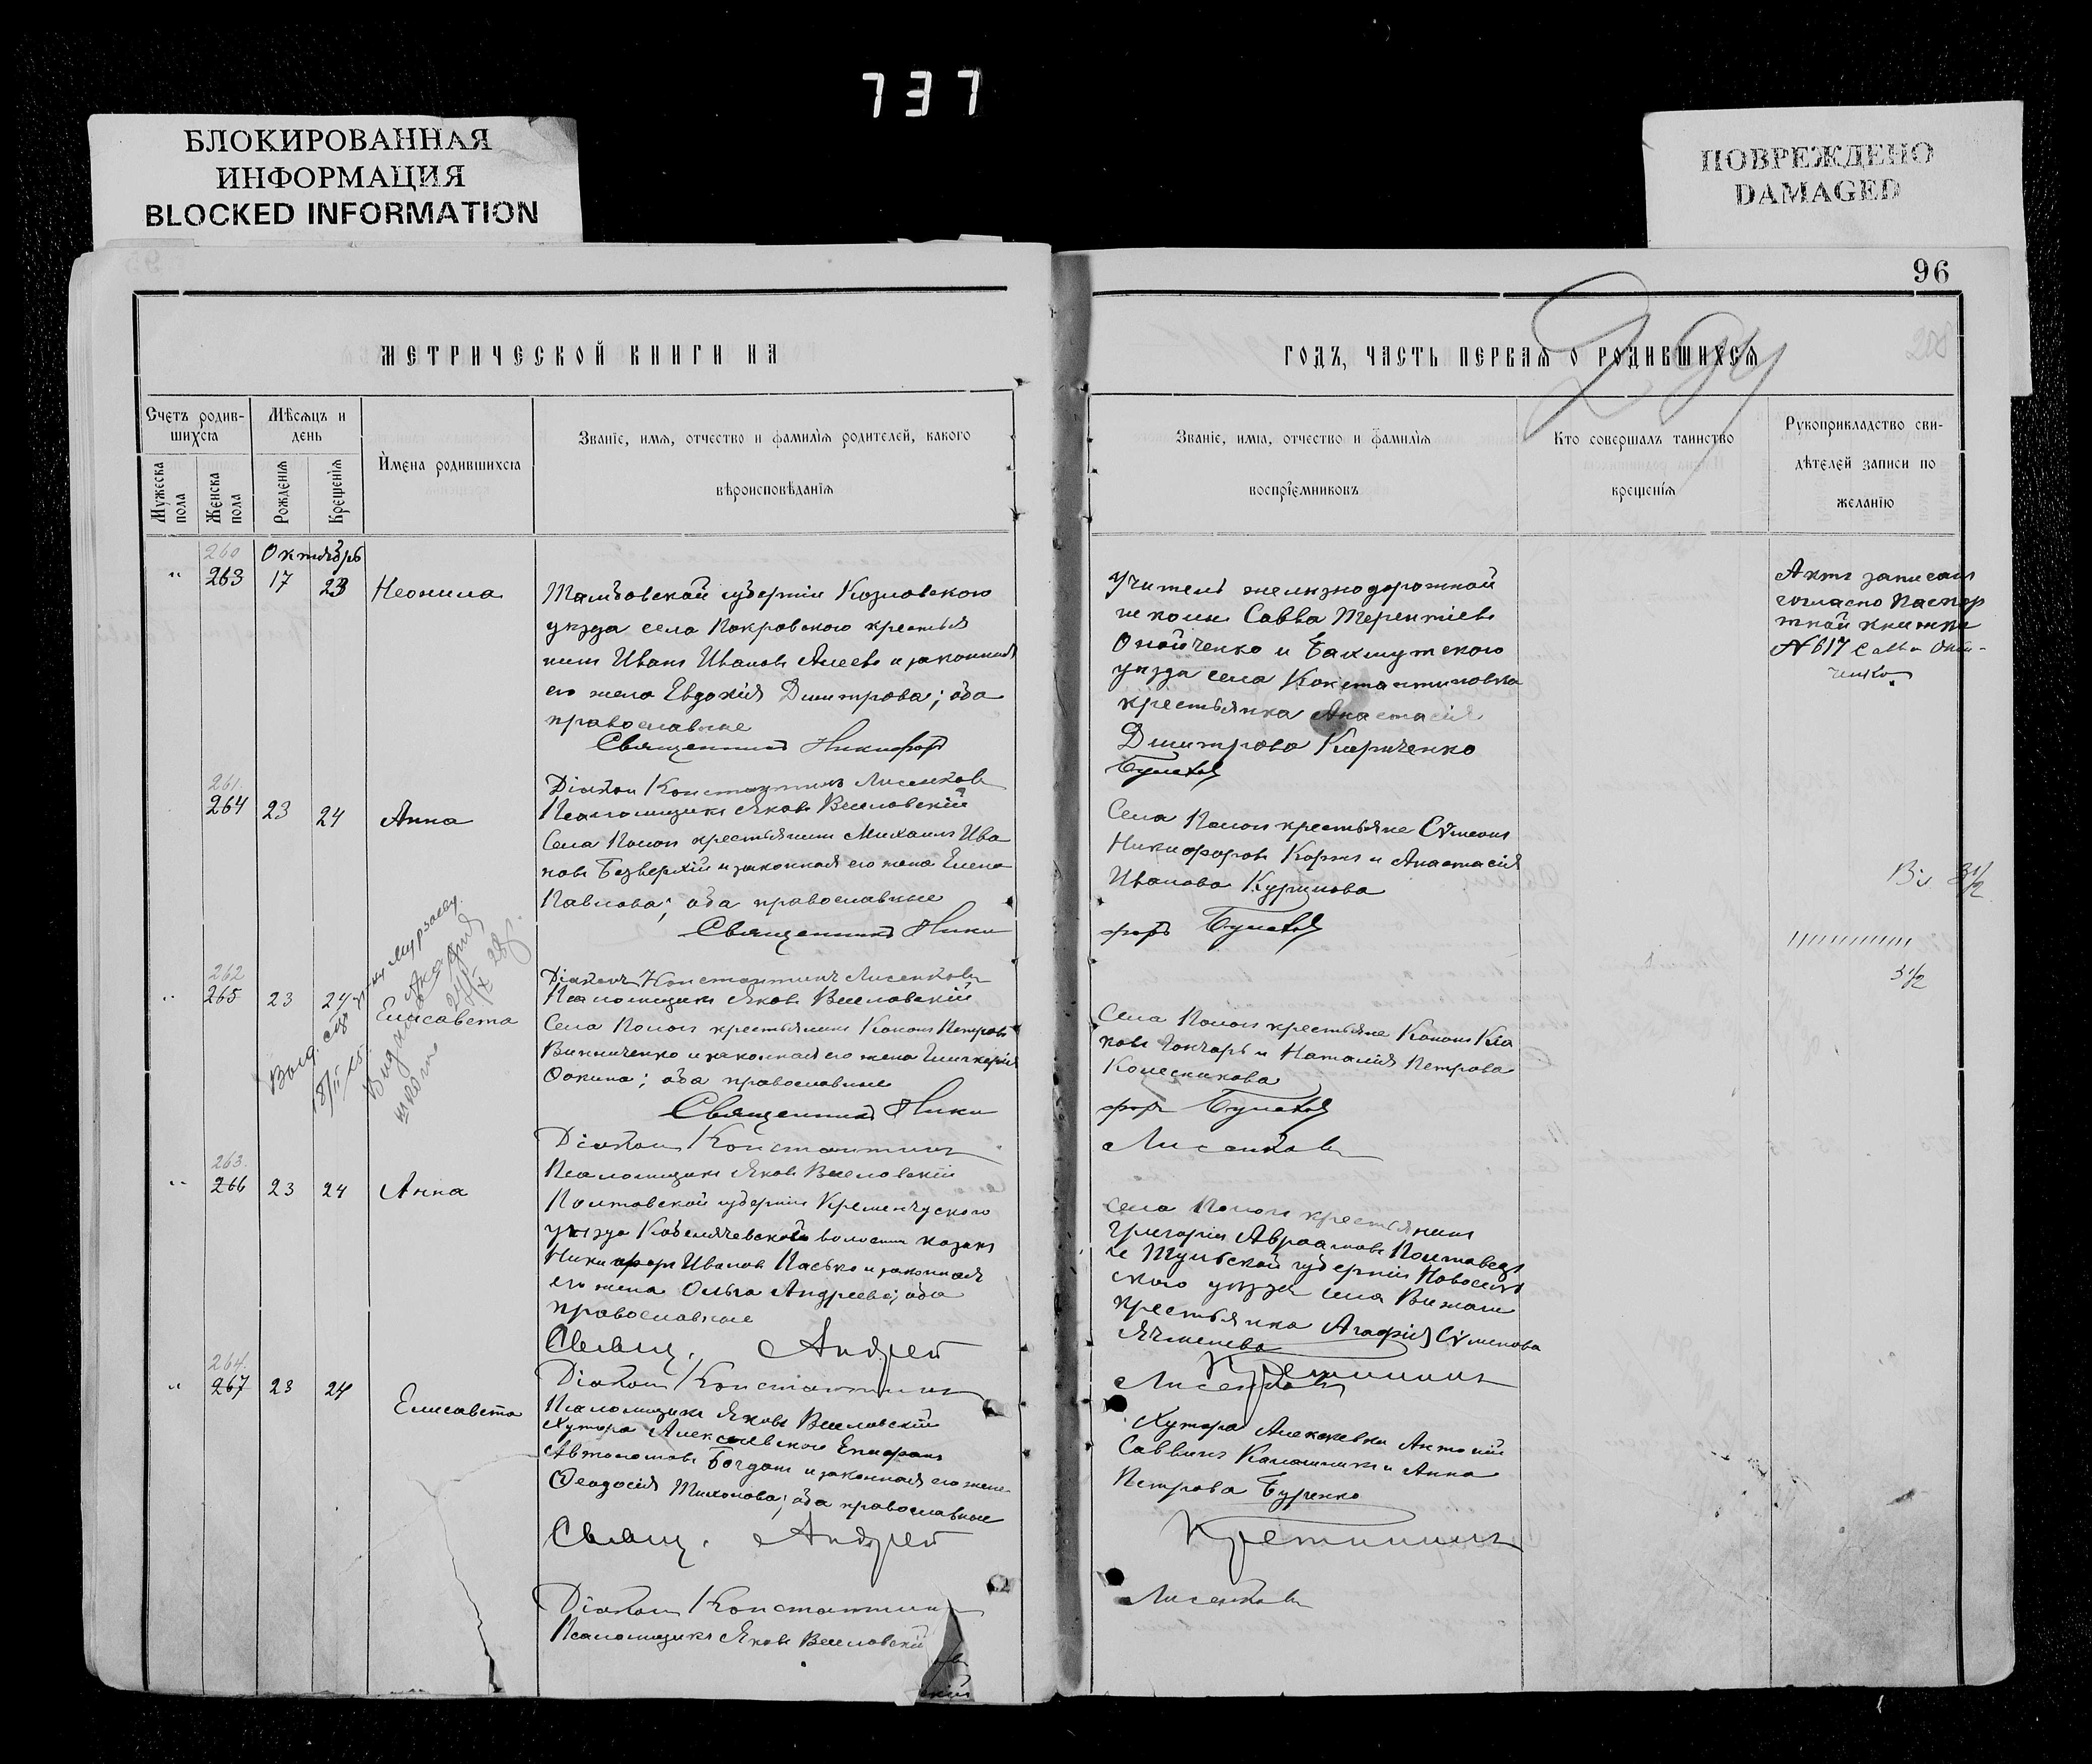 737
БЛОКИРОВАННАЯ
ИНФОРМАЦИЯ
BLOCKED INFORMATION
ПОВРЕЖДЕНО
DAMAGED
96
МЕТРИЧЕСКОЙ КНИГИ НА
Счетъ родив-
шихся
Мѣсяцъ и
день
Имена родившихся
Званіе, имя, отчество и фамилія родителей, какого
вѣроисповѣданія
Мужеска
пола
Женска
пола
Рожденія
Крещенія
260
Октябрь
" 263 17 23 Неонила
Тамбовской губерніи Козловскаго
уѣзда села Покровского крестья
нинъ Иванъ Ивановъ и законная
его жена Евдокія Димитрова; оба
православные
Священникъ Никифоръ
Діаконъ Константинъ Лисенковъ
261
264 23 24 Анна
Псаломщикъ Яковъ Веселовскій
Села Попасн крестьянинъ Михаилъ Ива
новъ Безверхій и законная его жена Елена
Павлова; оба православные
Священникъ Ники
Діаконъ Константинъ Лисенковъ
262
" 265 23 24 Елисавета
Псаломщикъ Яковъ Веселовскій
Села крестьянинъ Кононъ Петровъ
Винниченко и законная его жена Гликерія
Фокина; оба православные
Священникъ Ники
Діаконъ Константинъ
263
" 266 23 24 Анна
Псаломщикъ Яковъ Веселовскій
Полтавской губерніи Кременчугского
уѣзда волости казакъ
Никифоръ Ивановъ Пасько и законная
его жена Ольга Андреева; оба
православные
Свящ. Андрей
Діаконъ Константинъ
264
" 267 23 24 Елисавета
Псаломщикъ Яковъ Веселовскій
Хутора Алексѣевского Епифанъ
Автономовъ Богданъ и законная его жена
Феодосія Тихонова; оба православные
Свящ. Андрей
Діаконъ Константинъ
Псаломщикъ Яковъ Веселовскій
ГОДЪ, ЧАСТЬ ПЕРВАЯ О РОДИВШИХСЯ
294
208
Званіе, имя, отчество и фамилія
воспріемниковъ
Кто совершалъ таинство
крещенія
Рукоприкладство сви-
дѣтелей записи по
желанію
Учитель желѣзнодорожной
школы Савва Терентіевъ
Онойченко и Бахмутского
уѣзда села Константиновка
крестьянка Анастасія
Димитрова Кириченко
Булатовъ
Актъ записанъ
согласно паспор
тной книжки
№ 617 Савва Оной-
ченко
Села крестьяне Сѵмеонъ
Никифоровъ Коржъ и Анастасія
Иванова Курилова
форъ Булатовъ
Села крестьяне Кононъ
новъ Гончаръ и Наталія Петрова
Колесникова
форъ Булатовъ
Лисенковъ
Села крестьянинъ
Григорій Авраамовъ Полтавецъ
и Тульской губерніи Новосиль
ского уѣзда села
крестьянка Агафія Сѵменова
Ячменева
Кретининъ
Лисенковъ
Хутора Алексѣевки Антоній
Саввинъ Калашникъ и Анна
Петрова Буренко
Кретининъ
Лисенковъ